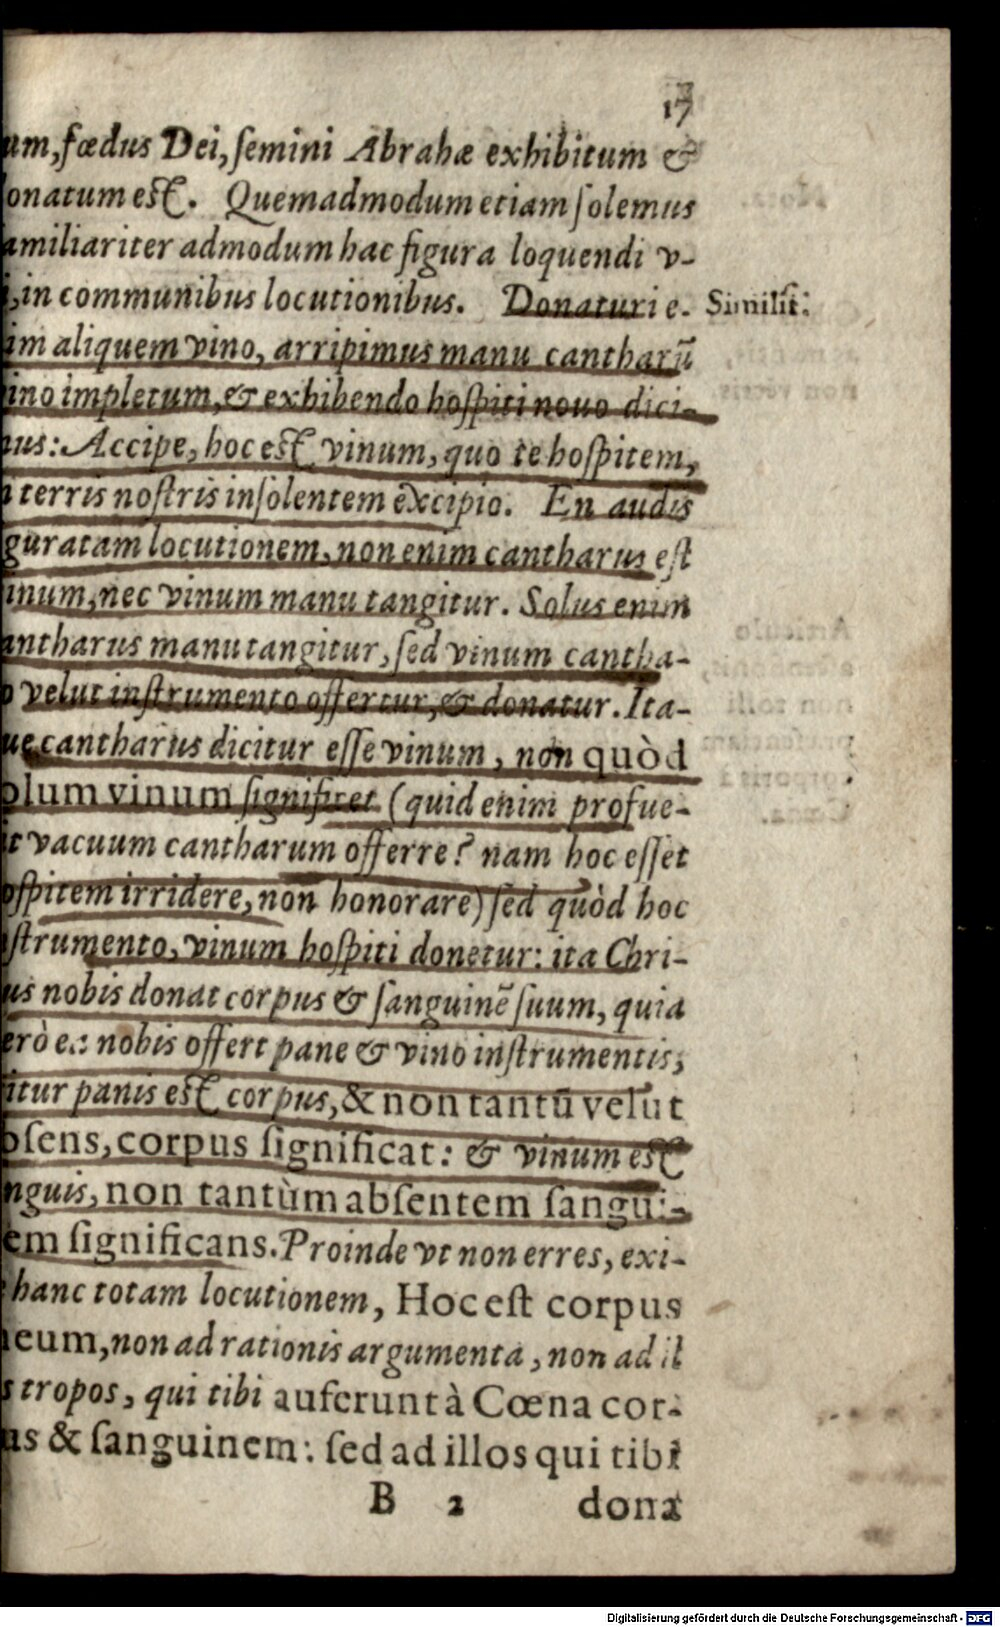 17
um, fœdus Dei, ſemini Abrahæ exhibitum &
onatum eſt. Quemadmodum etiam ſolemus
amiliariter admodum hac figura loquendi v-
i, in communibus locutionibus. Donaturi e- Similit:
im aliquem vino, arripimus manu cantharū
ino impletum, & exhibendo hoſpiti nouo dici-
nus: Accipe, hoc eſt vinum, quo te hoſpitem,
n terris noſtris inſolentem excipio. En audis
guratam locutionem, non enim cantharus eſt
inum, nec vinum manu tangitur. Solus enim
antharus manu tangitur, ſed vinum cantha-
o velut inſtrumento offertur, & donatur. Ita-
ue cantharus dicitur eſſe vinum, non quòd
olum vinum ſignificet (quid enim profue-
it vacuum cantharum offerre? nam hoc eſſet
oſpitem irridere, non honorare) ſed quòd hoc
nſtrumento, vinum hoſpiti donetur: ita Chri-
us nobis donat corpus & ſanguinē ſuum, quia
erò ea nobis offert pane & vino inſtrumentis;
itur panis eſt corpus, & non tantū velut
bſens, corpus ſignificat: & vinum eſt
nguis, non tantùm abſentem ſangui-
em ſignificans. Proinde vt non erres, exi-
e hanc totam locutionem, Hoc eſt corpus
meum, non ad rationis argumenta, non ad il
s tropos, qui tibi auferunt à Cœna cor-
us & ſanguinem: ſed ad illos qui tibi
B 2 dona
Digitalisierung gefördert durch die Deutsche Forschungsgemeinschaft - DFG